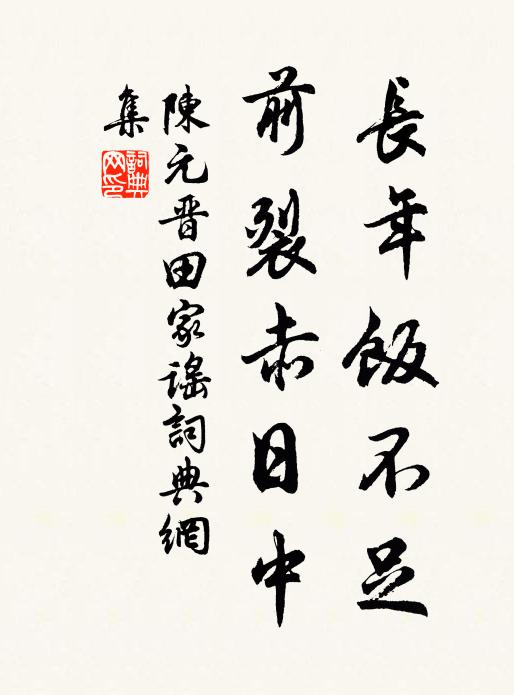 長年飯不足
前裂赤日中
陳元晋田家謡詞典網
集
詞典
网印